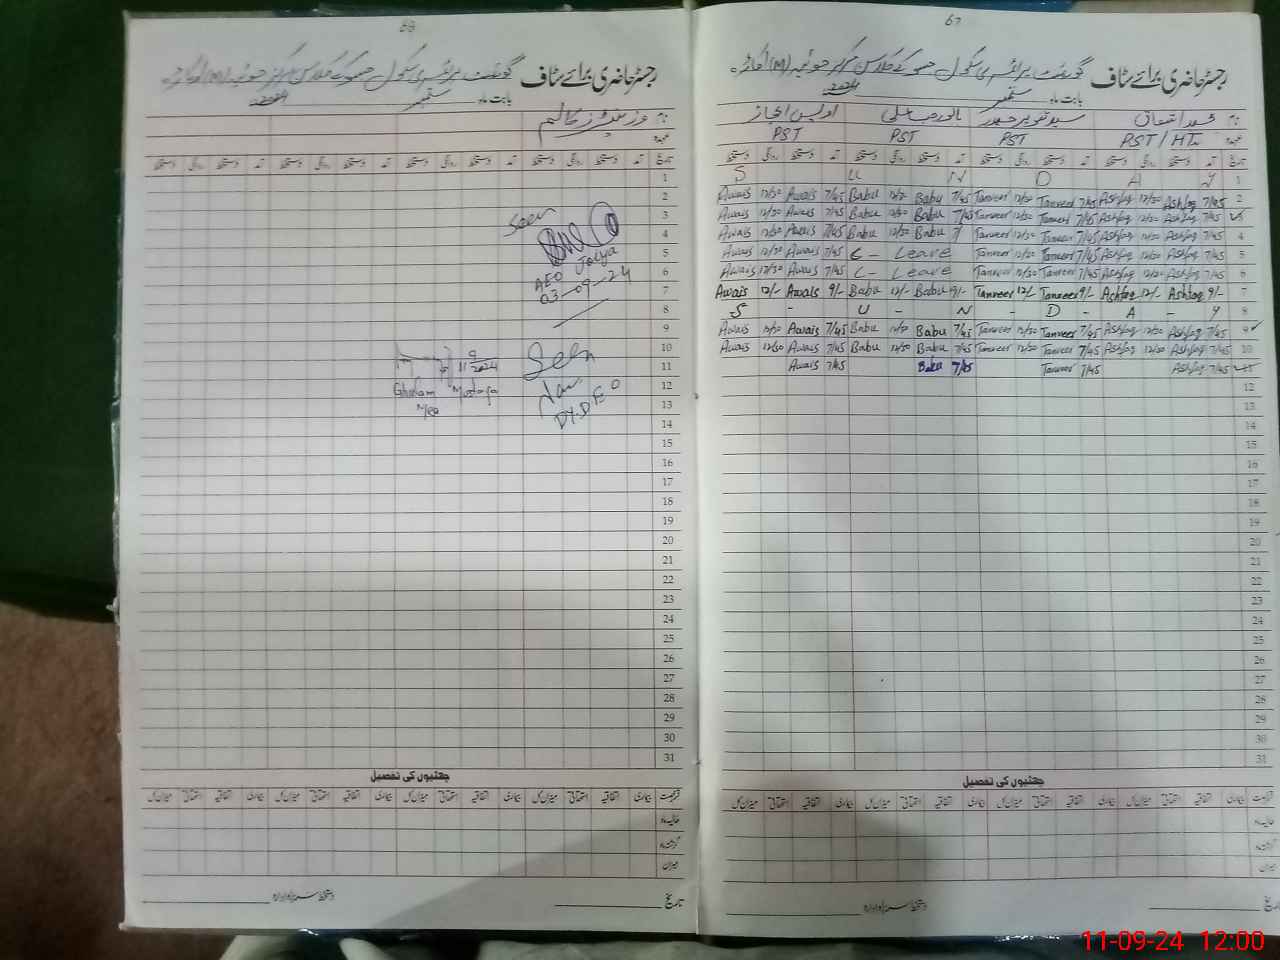 67
رجسٹر حاضری برائے سٹاف گورنمنٹ پرائمری سکول (M) اوکاڑہ
بابت ماہ ستمبر 2024
نام محمد اشفاق سید تنویر حیدر بابو رجب علی اویس اعجاز
عہدہ PST / HT PST PST PST
تاریخ آمد دستخط روانگی دستخط آمد دستخط روانگی دستخط آمد دستخط روانگی دستخط آمد دستخط روانگی دستخط
S U N D A Y 1
Awais 12/30 Awais 7/45 Babu 12/30 Babu 7/45 Tanveer 12/30 Tanveer 7/45 Ashfaq 12/30 Ashfaq 7/45 2
Awais 12/30 Awais 7/45 Babu 12/30 Babu 7/45 Tanveer 12/30 Tanveer 7/45 Ashfaq 12/30 Ashfaq 7/45 3
Awais 12/30 Awais 7/45 Babu 12/30 Babu 7/ Tanveer 12/30 Tanveer 7/45 Ashfaq 12/30 Ashfaq 7/45 4
Awais 12/30 Awais 7/45 C - Leave Tanveer 12/30 Tanveer 7/45 Ashfaq 12/30 Ashfaq 7/45 5
Awais 12/30 Awais 7/45 C - Leave Tanveer 12/30 Tanveer 7/45 Ashfaq 12/30 Ashfaq 7/45 6
Awais 12/- Awais 9/- Babu 12/- Babu 9/- Tanveer 12/- Tanveer 9/- Ashfaq 12/- Ashfaq 9/- 7
S - U - N - D - A - Y 8
Awais 12/30 Awais 7/45 Babu 12/30 Babu 7/45 Tanveer 12/30 Tanveer 7/45 Ashfaq 12/30 Ashfaq 7/45 9
Awais 12/30 Awais 7/45 Babu 12/30 Babu 7/45 Tanveer 12/30 Tanveer 7/45 Ashfaq 12/30 Ashfaq 7/45 10
Awais 7/45 Babu 7/45 Tanveer 7/45 Ashfaq 7/45 11
12
13
14
15
16
17
18
19
20
21
22
23
24
25
26
27
28
29
30
31
چھٹیوں کی تفصیل
قسم رخصت بیماری اتفاقیہ استحقاقی میزان کل بیماری اتفاقیہ استحقاقی میزان کل بیماری اتفاقیہ استحقاقی میزان کل بیماری اتفاقیہ استحقاقی میزان کل
حالیہ ماہ
گزشتہ ماہ
میزان
تاریخ دستخط سربراہ ادارہ
68
رجسٹر حاضری برائے سٹاف گورنمنٹ پرائمری سکول (M) اوکاڑہ
بابت ماہ ستمبر 2024
نام وزیٹرز کالم
عہدہ
تاریخ آمد دستخط روانگی دستخط آمد دستخط روانگی دستخط آمد دستخط روانگی دستخط آمد دستخط روانگی دستخط
1
2
Seen 3
4
5
AEO Joiya 6
03-09-24 7
8
9
Seen 11 9 2024 10
11
Ghulam Mustafa 12
MEA DY.DEO 13
14
15
16
17
18
19
20
21
22
23
24
25
26
27
28
29
30
31
چھٹیوں کی تفصیل
قسم رخصت بیماری اتفاقیہ استحقاقی میزان کل بیماری اتفاقیہ استحقاقی میزان کل بیماری اتفاقیہ استحقاقی میزان کل بیماری اتفاقیہ استحقاقی میزان کل
حالیہ ماہ
گزشتہ ماہ
میزان
تاریخ دستخط سربراہ ادارہ
11-09-24 12:00